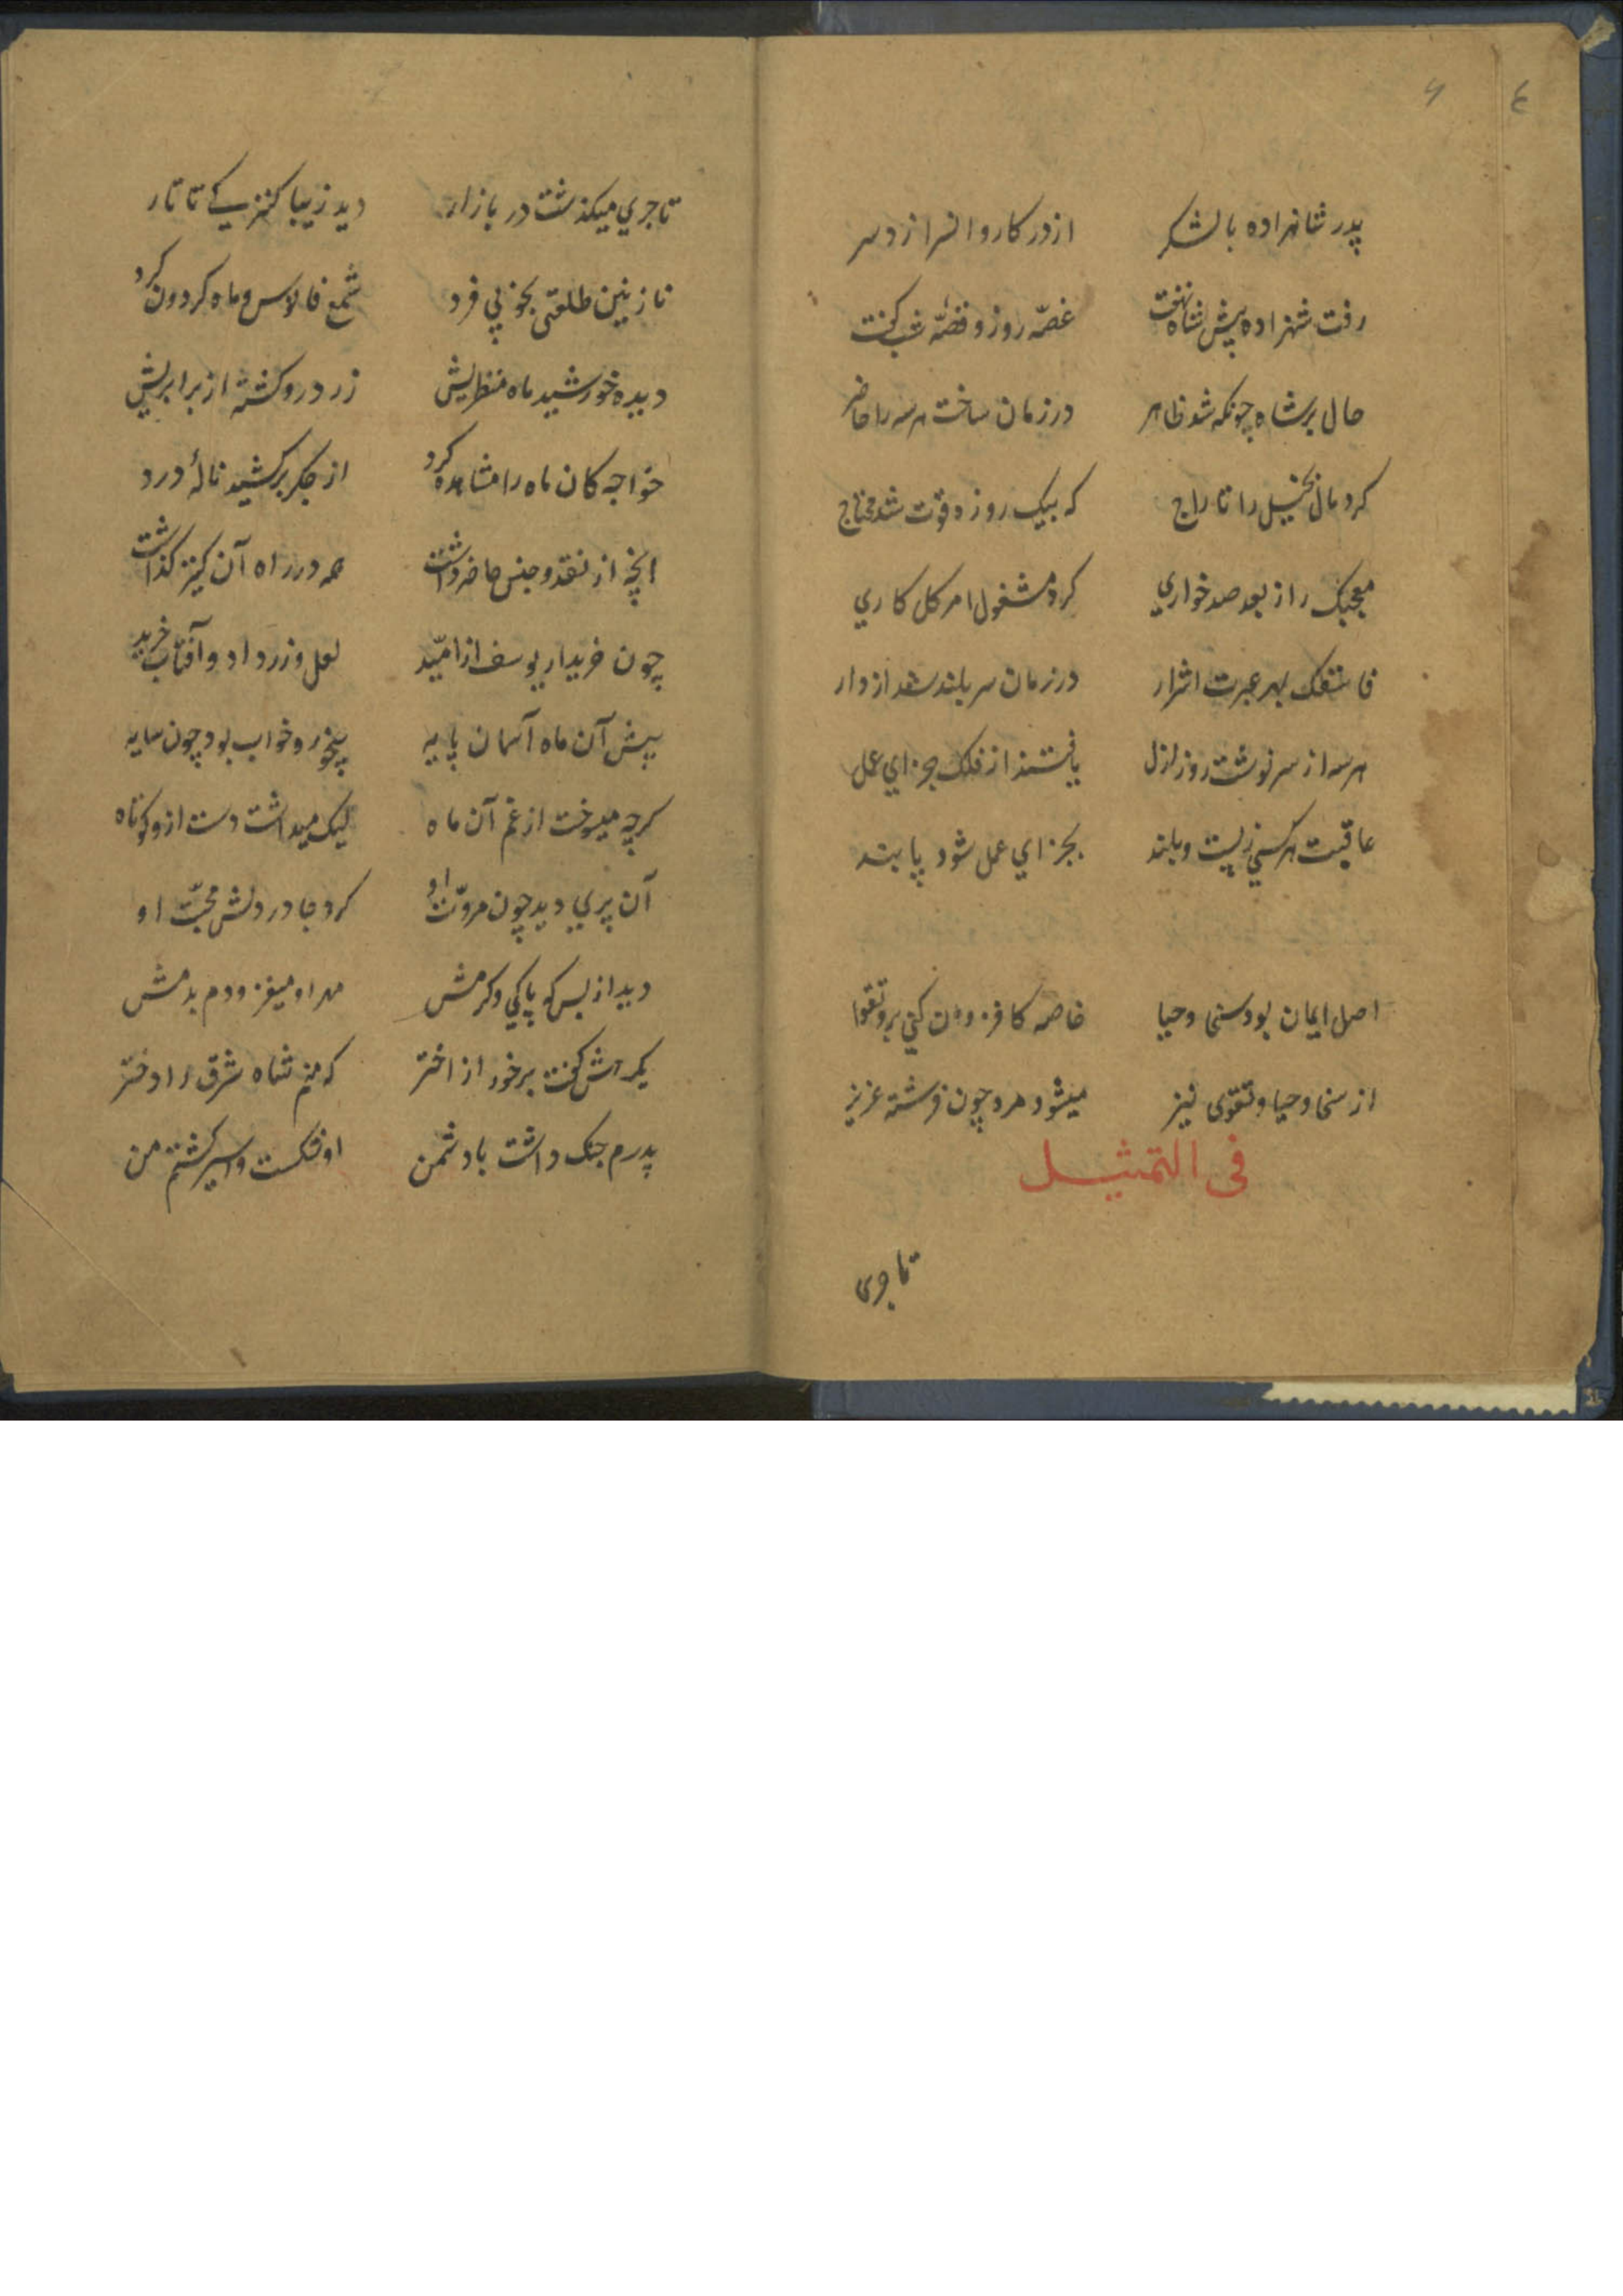 ۶ ٤
پدر شاهزاده با لشکر از در کاروانسرا زد سر
رفت شهزاده پیش شاه نهفت غصّه روز و قصّه شب گفت
حال بر شاه چونکه شد ظاهر در زمان ساخت هر سه را حاضر
کرد مال بخیل را تاراج که بیک روزه قوت شد محتاج
معجبک را ز بعد صد خواري کرد مشغول امر کل کاري
فاسقک بهر عبرت اشرار در زمان سر بلند شد از دار
هر سه از سر نوشت روز ازل یافتند از فلک جزاي عمل
عاقبت هر کسي ز پست و بلند بجزاي عمل شود پابند
اصل ایمان بود سخی و حیا خاصه کافزون کني برو تقوا
از سخا و حیا و تقوی نیز میشود مرد چون فرشته عزیز
فی التمثیل
تاجری
تاجري میکذشت در بازار دید زیبا کنیزکے تاتار
نازنین طلعتی بخوبي فرد شمع فانوس و ماه کردون کرد
دیده خورشید ماه منظریش زرد رو کشته از برابریش
خواجه کان ماه را مشاهده کرد از جکر برکشید نالهٔ درد
انچه از نقد و جنس حاضر داشت همه در راه آن کنیز کذاشت
چون خریدار یوسف از امّید لعل و زر داد و آفتاب خرید
پیش آن ماه آسمان پایه بیخور و خواب بود چون سایه
کرچه میسوخت از غم آن ماه لیک میداشت دست ازو کوتاه
آن پري دید چون مروّت او کرد جا در دلش محبّت او
دید از بس که پاکي و کرمش مهر او میفزود دم بدمش
یکرهش کفت برخور از اختر که منم شاه شرق را دختر
پدرم جنک داشت با دشمن او شکست و اسیر کشتم من